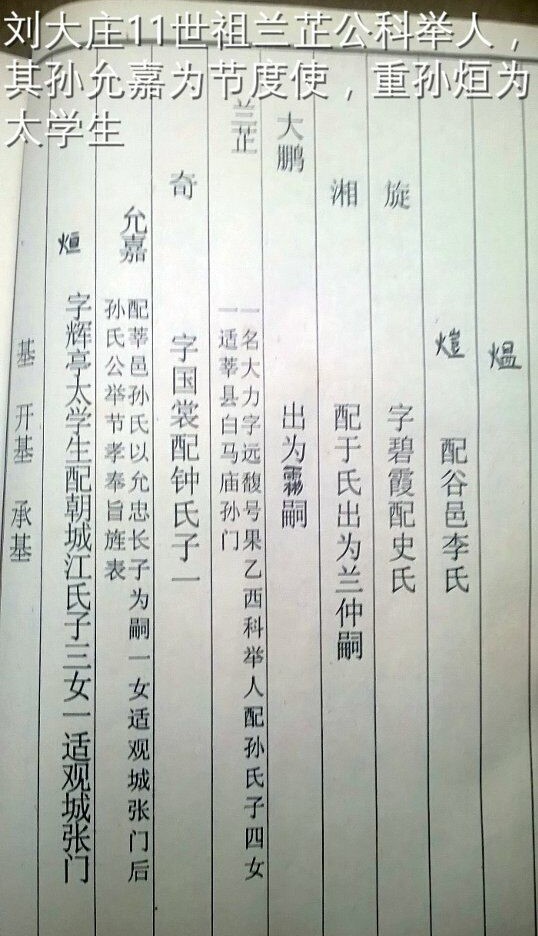 刘大庄11世祖兰芷公科举人，
其孙允嘉为节度使，重孙烜为
太学生
煴
配谷邑李氏
旋 字碧霞配史氏
湘 配于氏出为兰仲嗣
大鹏 出为嗣
兰芷 一名大力字远馥号果乙酉科举人配孙氏子四女
一适莘县白马庙孙门
奇 字国裳配钟氏子一
允嘉 配莘邑孙氏以允忠长子为嗣一女适观城张门后
孙氏公举节孝奉旨旌表
烜 字辉亭太学生配朝城江氏子三女一适观城张门
基 开基 承基